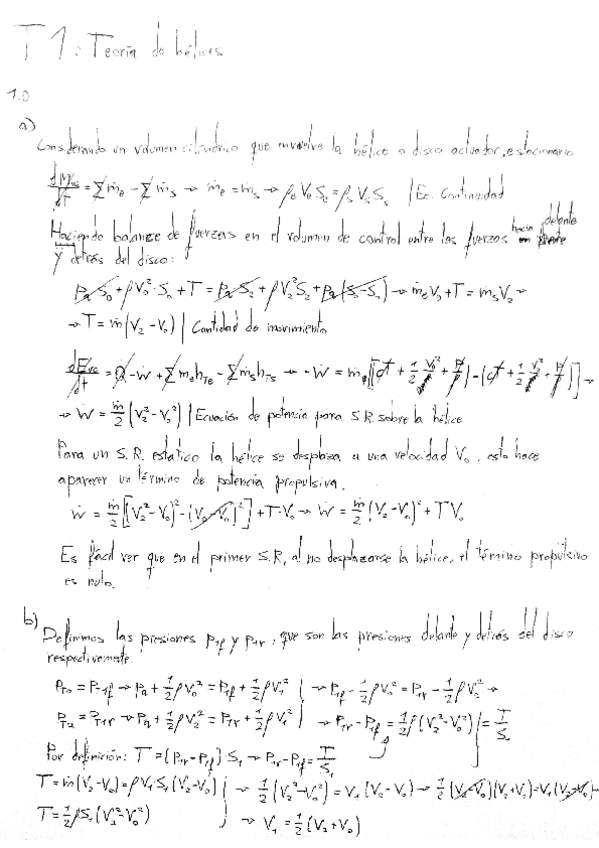 T1: Teoría de hélices
1.0
a)
Considerando un volumen cilíndrico que envuelve la hélice o disco actuador, estacionario
dM_vc/dt = ∑ṁ_e - ∑ṁ_s → ṁ_e = ṁ_s → ρ_0 V_0 S_0 = ρ_s V_s S_s | Ec. Continuidad
Haciendo balance de fuerzas en el volumen de control entre las fuerzas hacia delante
y detrás del disco:
p_a S_0 + ρV_0²·S_0 + T = p_a S_2 + ρV_2² S_2 + p_a(S_0-S_2) → ṁ_e V_0 + T = ṁ_s V_2 →
→ T = ṁ(V_2 - V_0) | Cantidad de movimiento
dE_vc/dt = Q̇ - Ẇ + ∑ṁ_e h_Te - ∑ṁ_s h_Ts → -Ẇ = ṁ[(cT + 1/2 V_0² + p/ρ) - (cT + 1/2 V_2² + p/ρ)] →
→ Ẇ = ṁ/2 (V_2² - V_0²) | Ecuación de potencia para S.R. sobre la hélice
Para un S.R. estático la hélice se desplaza a una velocidad V_0, esto hace
aparecer un término de potencia propulsiva.
Ẇ = ṁ/2 [(V_2 - V_0)² - (V_0 - V_0)²] + T·V_0 → Ẇ = ṁ/2 (V_2 - V_0)² + TV_0
Es fácil ver que en el primer S.R, al no desplazarse la hélice, el término propulsivo
es nulo.
b)
Definimos las presiones p_1f y p_1r, que son las presiones delante y detrás del disco
respectivamente
P_T0 = P_T1f → p_a + 1/2 ρV_0² = p_1f + 1/2 ρV_1² | → p_1f - 1/2 ρV_0² = p_1r - 1/2 ρV_2² →
P_T2 = P_T1r → p_a + 1/2 ρV_2² = p_1r + 1/2 ρV_1² | → p_1r - p_1f = 1/2 ρ(V_2² - V_0²) | = T/S_1
Por definición: T = (p_1r - p_1f) S_1 → p_1r - p_1f = T/S_1
T = ṁ(V_2 - V_0) = ρV_1 S_1 (V_2 - V_0) | → 1/2 (V_2² - V_0²) = V_1 (V_2 - V_0) → 1/2 (V_2 - V_0)(V_2 + V_0) = V_1(V_2 - V_0) →
T = 1/2 ρS_1 (V_2² - V_0²) → V_1 = 1/2 (V_2 + V_0)